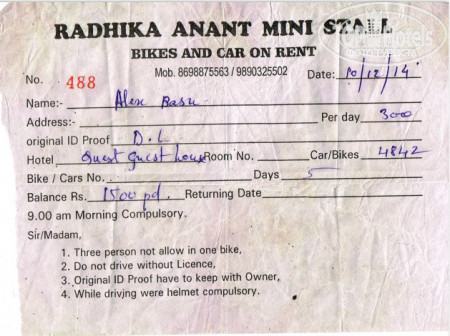 RADHIKA ANANT MINI STALL
BIKES AND CAR ON RENT
Mob. 8698875563 / 9890325502
No. 488 Date: 10/12/14
Name:- Alex Basu
Address:- Per day 3000
original ID Proof D.L
Hotel Quest guest house Room No. Car/Bikes 4842
Bike / Cars No. Days 5
Balance Rs. 1500 pd. Returning Date
9.00 am Morning Compulsory.
Sir/Madam,
1. Three person not allow in one bike,
2. Do not drive without Licence,
3. Original ID Proof have to keep with Owner,
4. While driving were helmet compulsory.